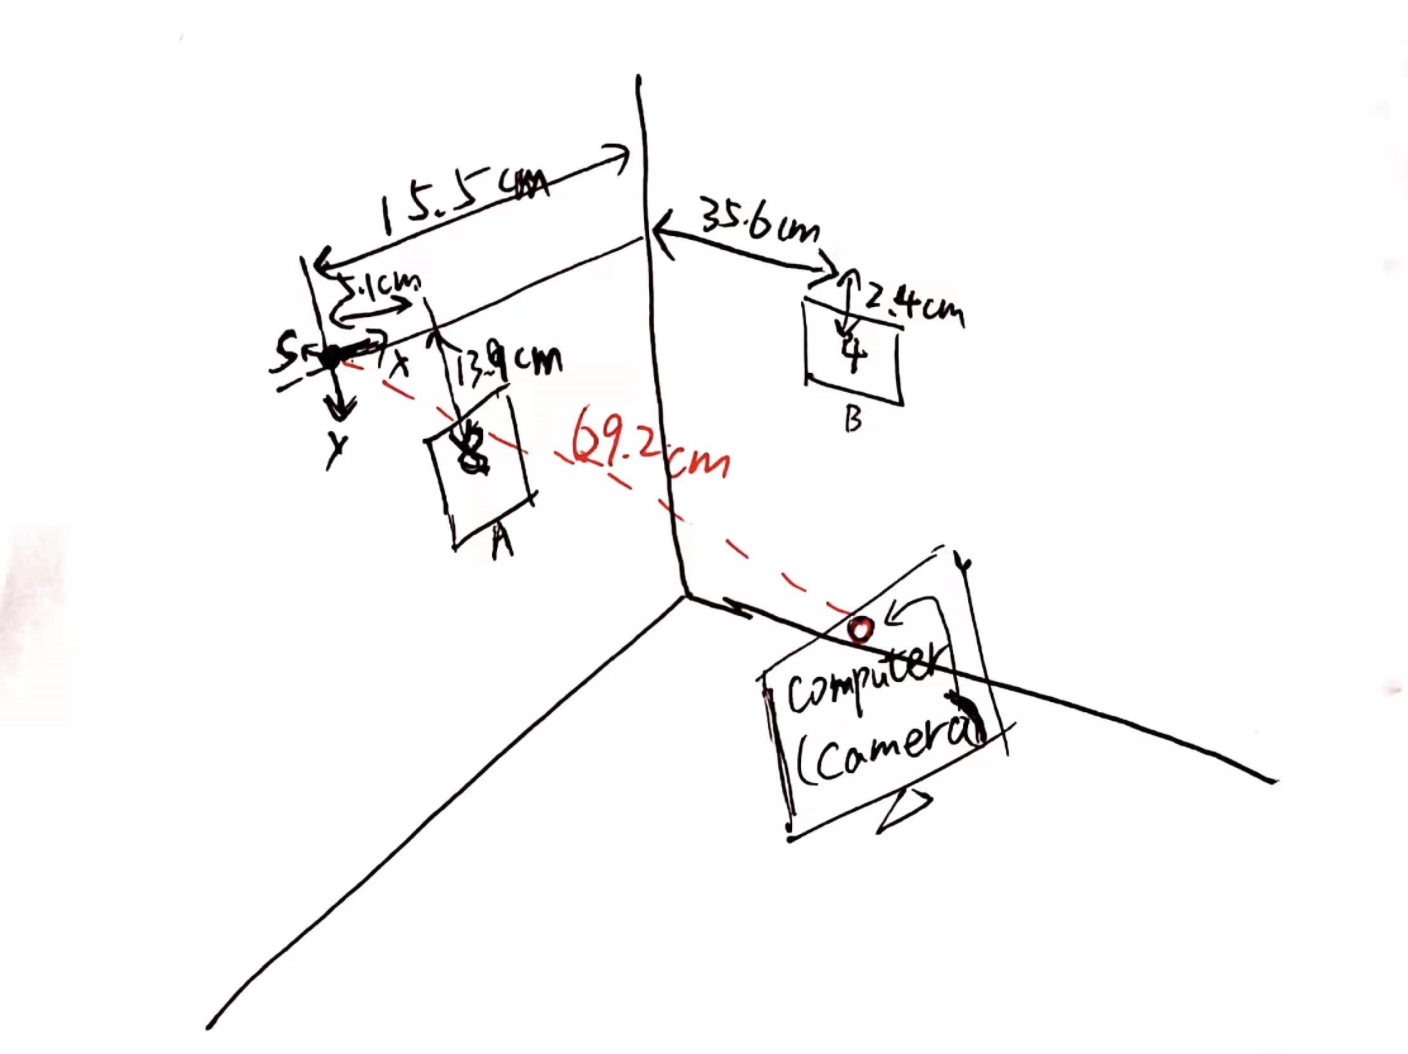 15.5cm
35.6cm
5.1cm
2.4cm
S
X
13.9cm
4
B
Y
8
69.2cm
A
computer
(camera)